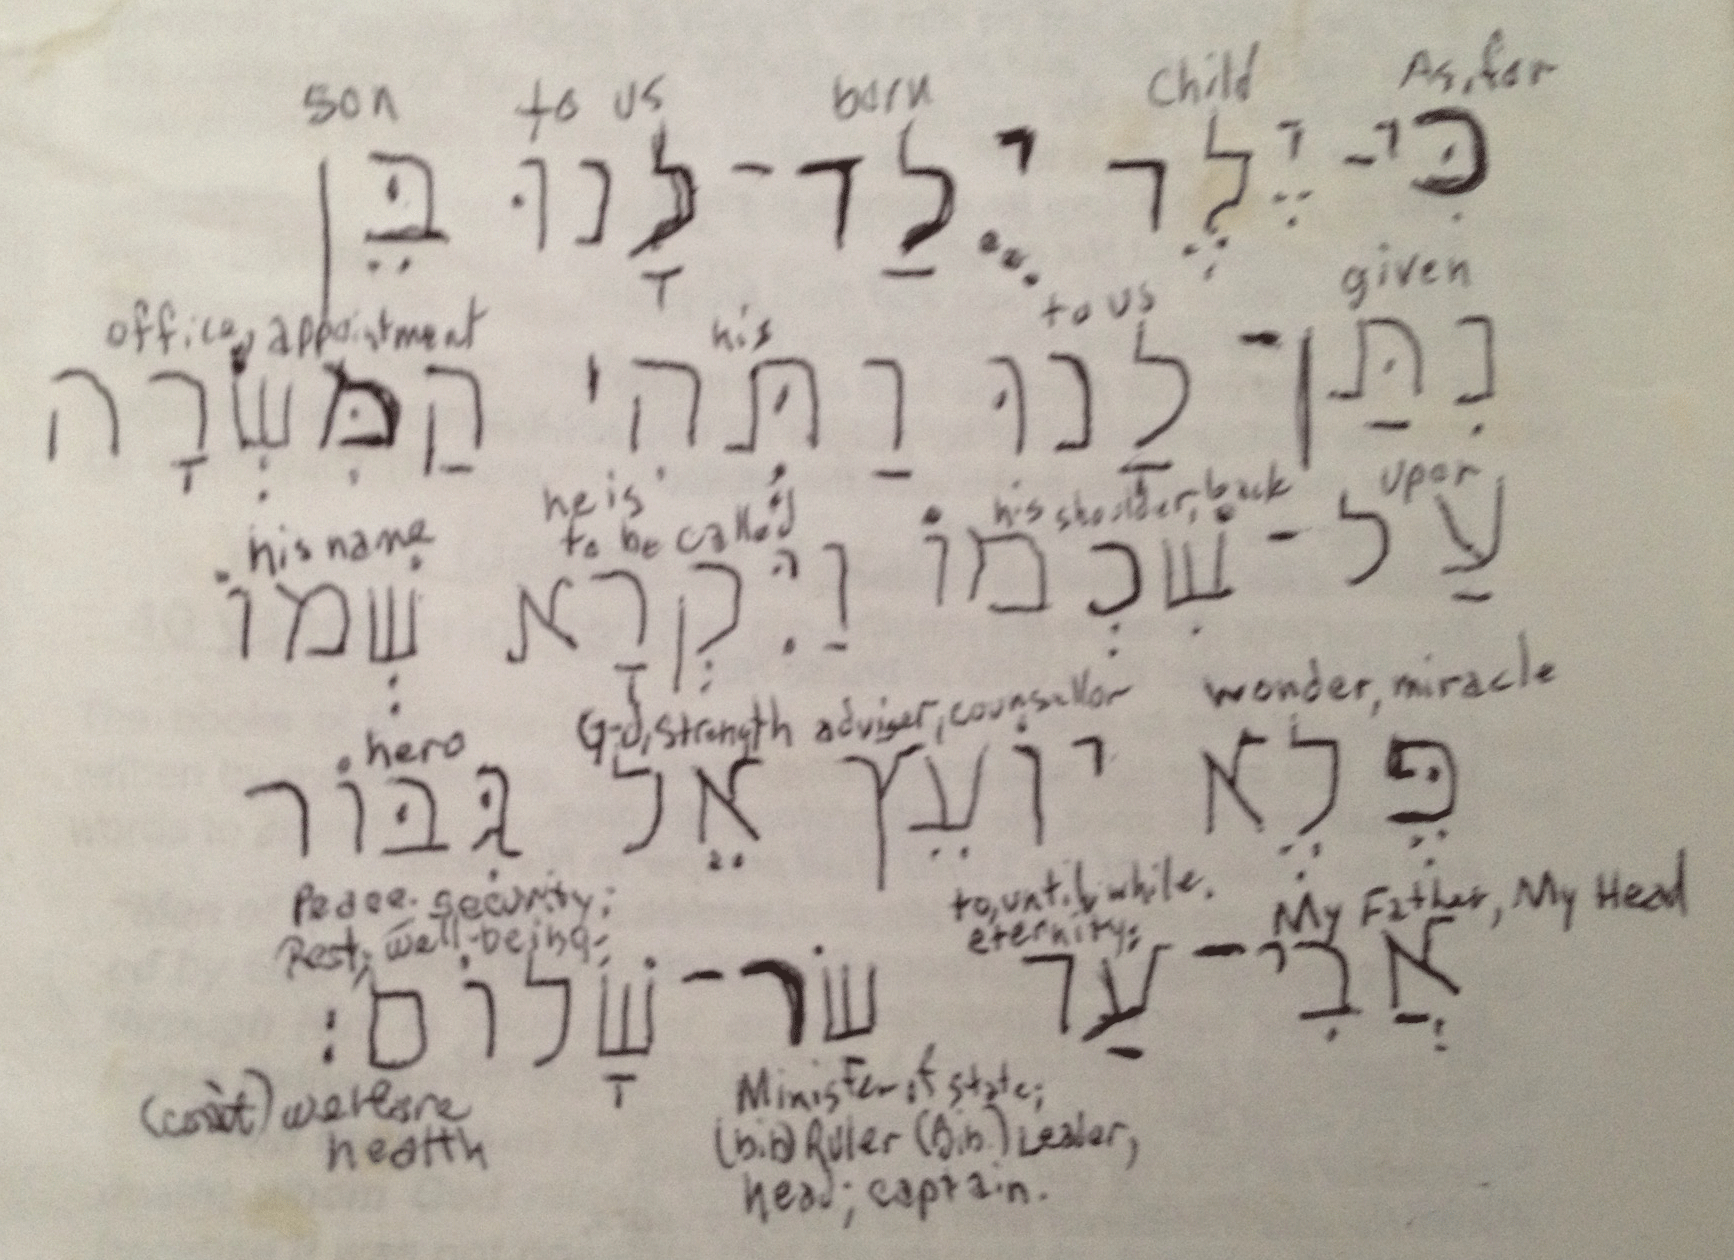 son to us born Child As, for
כִּי־ יֶלֶד יֻלַד־לָנוּ בֵּן
office, appointment his to us given
נִתַּן־ לָנוּ וַתְּהִי הַמִּשְׂרָה
his name he is to be called his shoulder, back upon
עַל־שִׁכְמוֹ וַיִּקְרָא שְׁמוֹ
hero G-d, strength adviser, counsellor wonder, miracle
פֶּלֶא יוֹעֵץ אֵל גִּבּוֹר
Peace. security; to, until, while. My Father, My Head
Rest; well-being; eternity;
אֲבִי־עַד שׂר־שָׁלוֹם׃
welfare Minister of state;
health Ruler (Bib.) Leader,
head; captain.